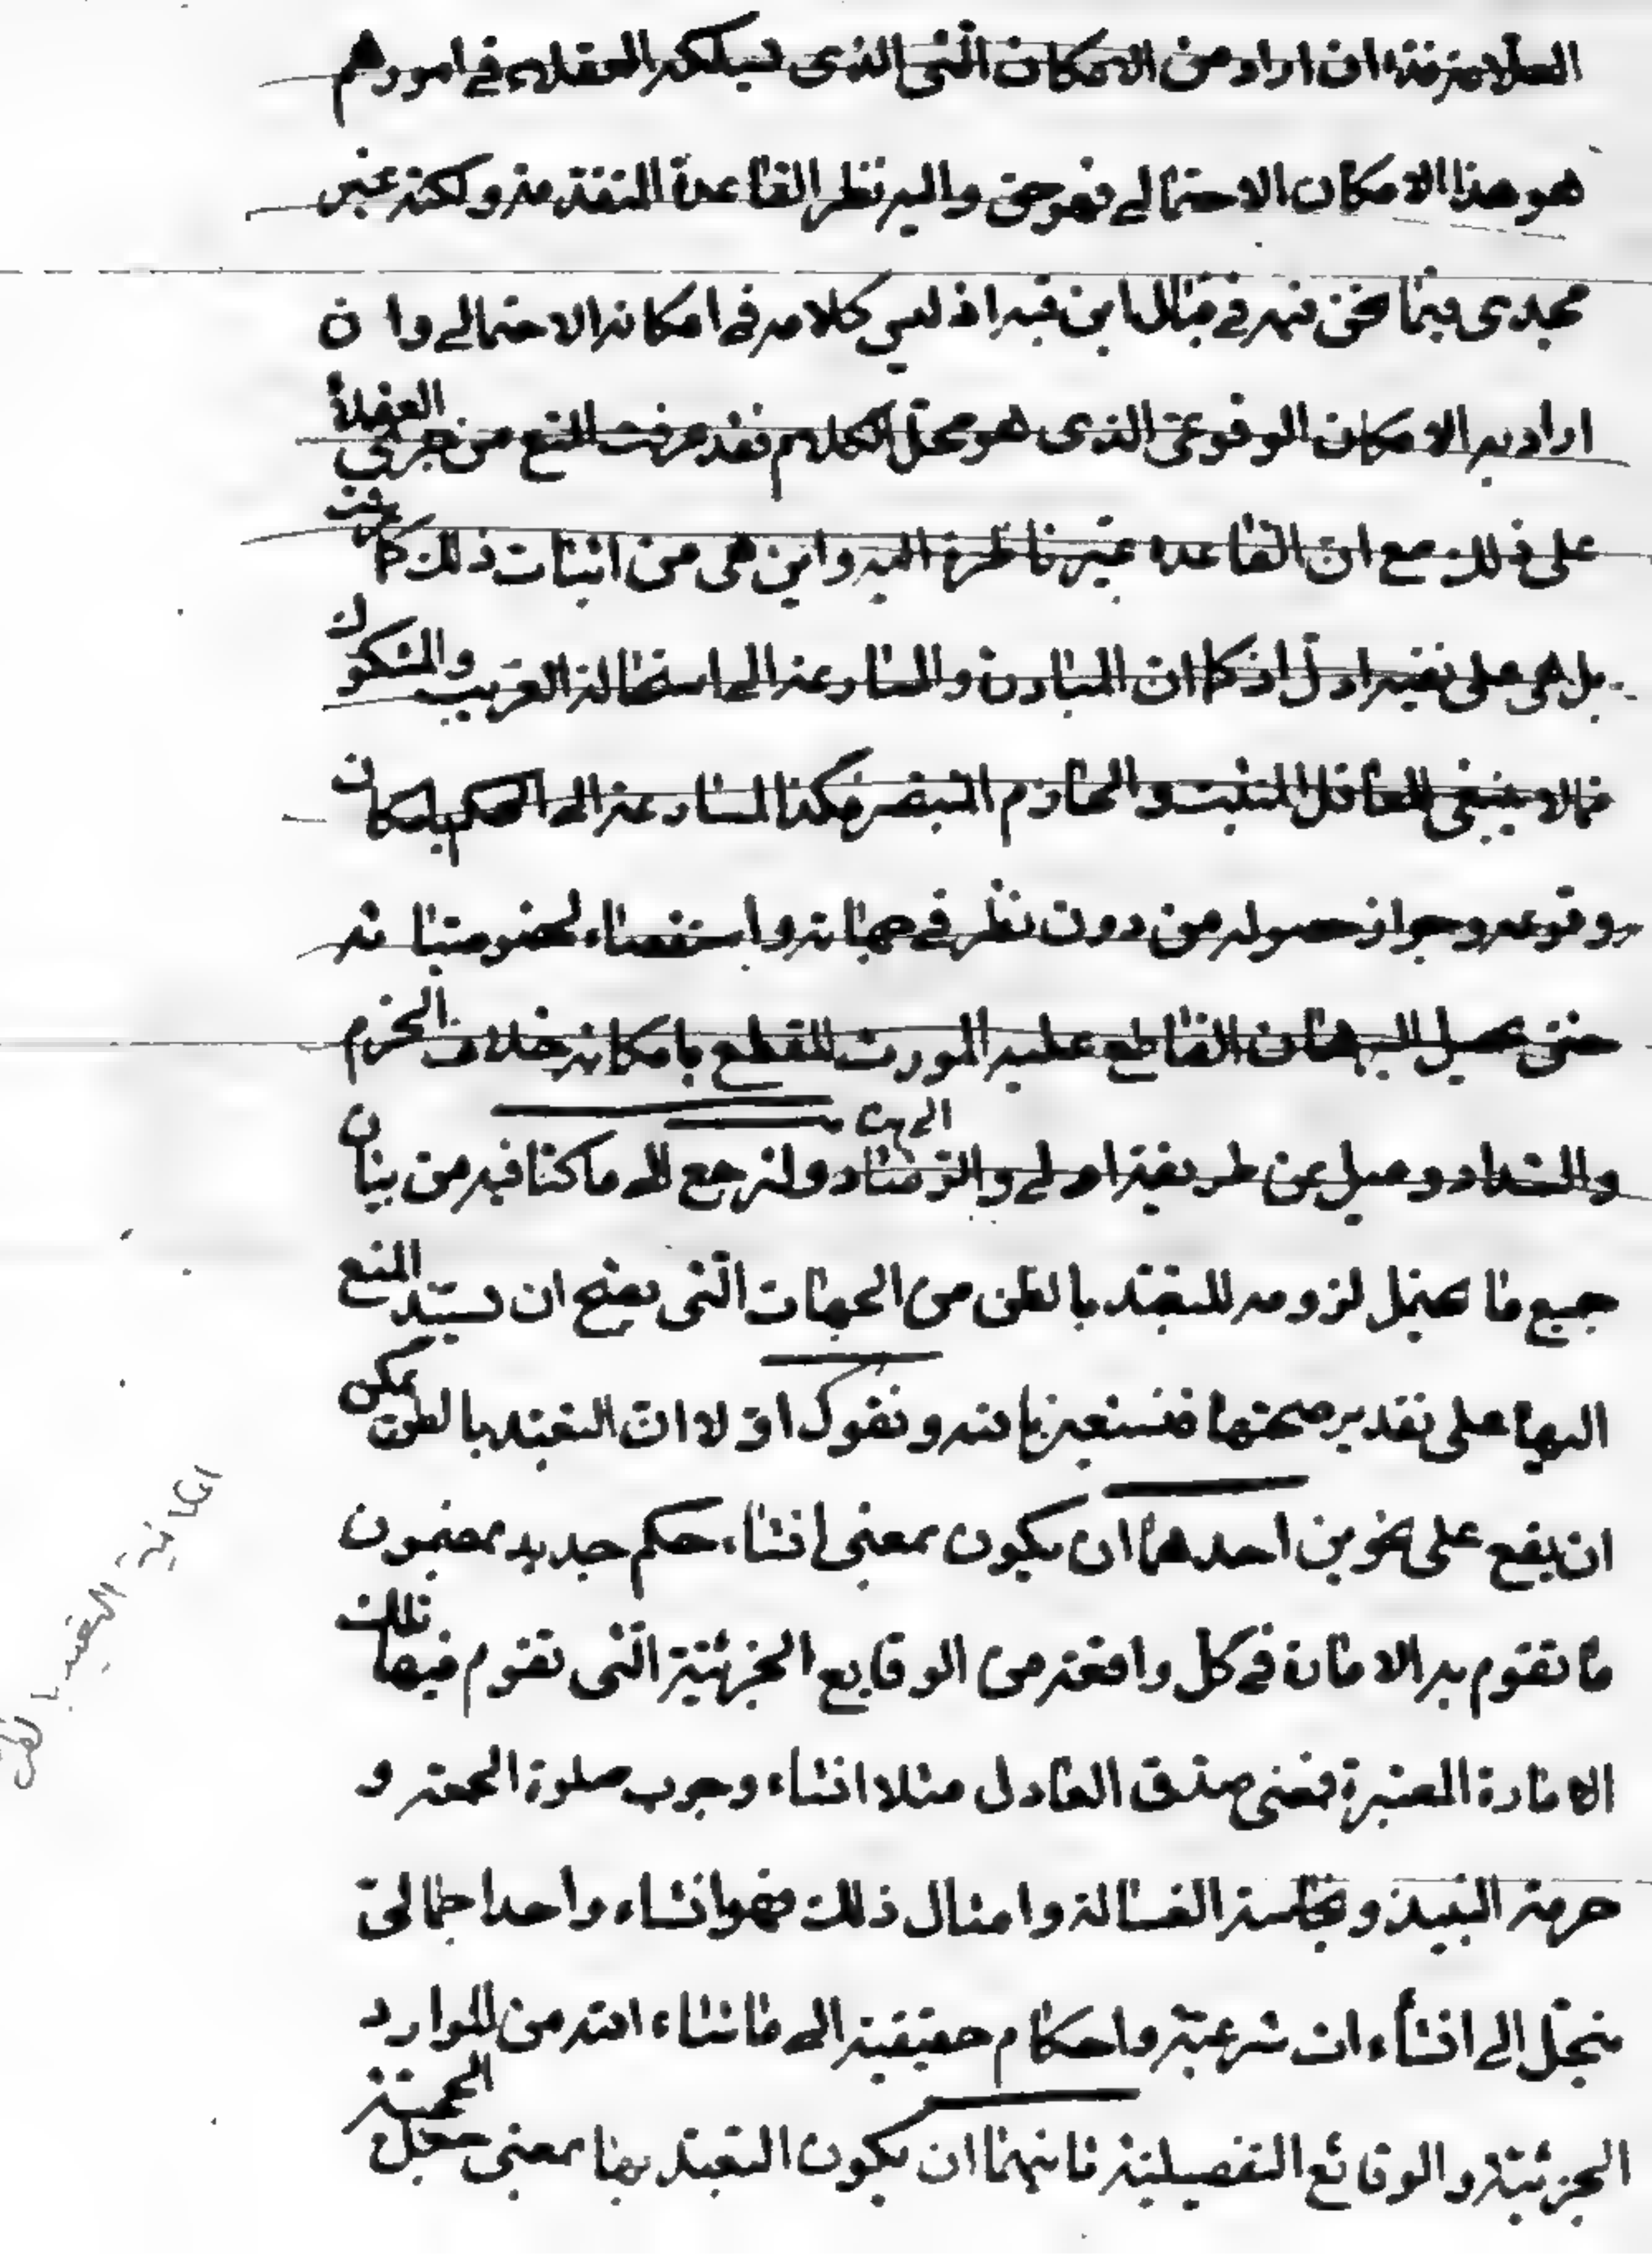 العلامة فذا ان اراد من الامكان الشي الذى يسلكه العقلاء في امورهم
هو هذا الامكان الاحتمالي فهو حق واليه نظر القاعدة المتقدمة ولكنه غير
مجدى فيما نحن فيه في قبال ابن قبه اذ ليس كلامه في امكانه الاحتمالي وان
اراد به الامكان الوقوعى الذى هو محل الكلام فقد عرفت المنع من جرى العقلاء
على ذلك مع ان القاعدة غير ناظرة اليه واين هى من اثبات ذلك كما عرفت
بل هى على نفيه ادل اذ كما ان المبادرة والمسارعة الى استحالة الغريب والمشكوك
مما لا ينبغى للعاقل المتثبت والحازم المتبصر فكذا المسارعة الى الحكم بامكان
وقوعه وجواز حصوله من دون نظر في جهاته واستقصاء لخصوصياته
حتى يحصل البرهان القاطع عليه المورث للقطع بامكانه خلاف الحزم
والسداد وميل عن طريقة اولي والرشاد ولنرجع الى ما كنا فيه من بيان
جميع ما يحتمل لزومه للتعبد بالظن من الجهات التى يصح ان يستند المنع
اليها على تقدير صحتها فنستعين بالله ونقول اولا ان التعبد بالظن يمكن
ان يقع على نحوين احدهما ان يكون بمعنى انشاء حكم جديد بمضمون
ما تقوم به الامارة في كل واقعة من الوقايع الجزئية التى تقوم فيها تلك
الامارة المعتبرة فمعنى صدق العادل مثلا انشاء وجوب صلوة الجمعة و
حرمة النبيذ ونجاسة الغسالة وامثال ذلك فهو انشاء واحد اجمالى
ينحل الى انشاءات شرعية واحكام حقيقية الى ما شاء الله من الموارد
الجزئية والوقائع التفصيلية ثانيهما ان يكون التعبد بها بمعنى جعل الحجية
امكانية التعبد بالظن